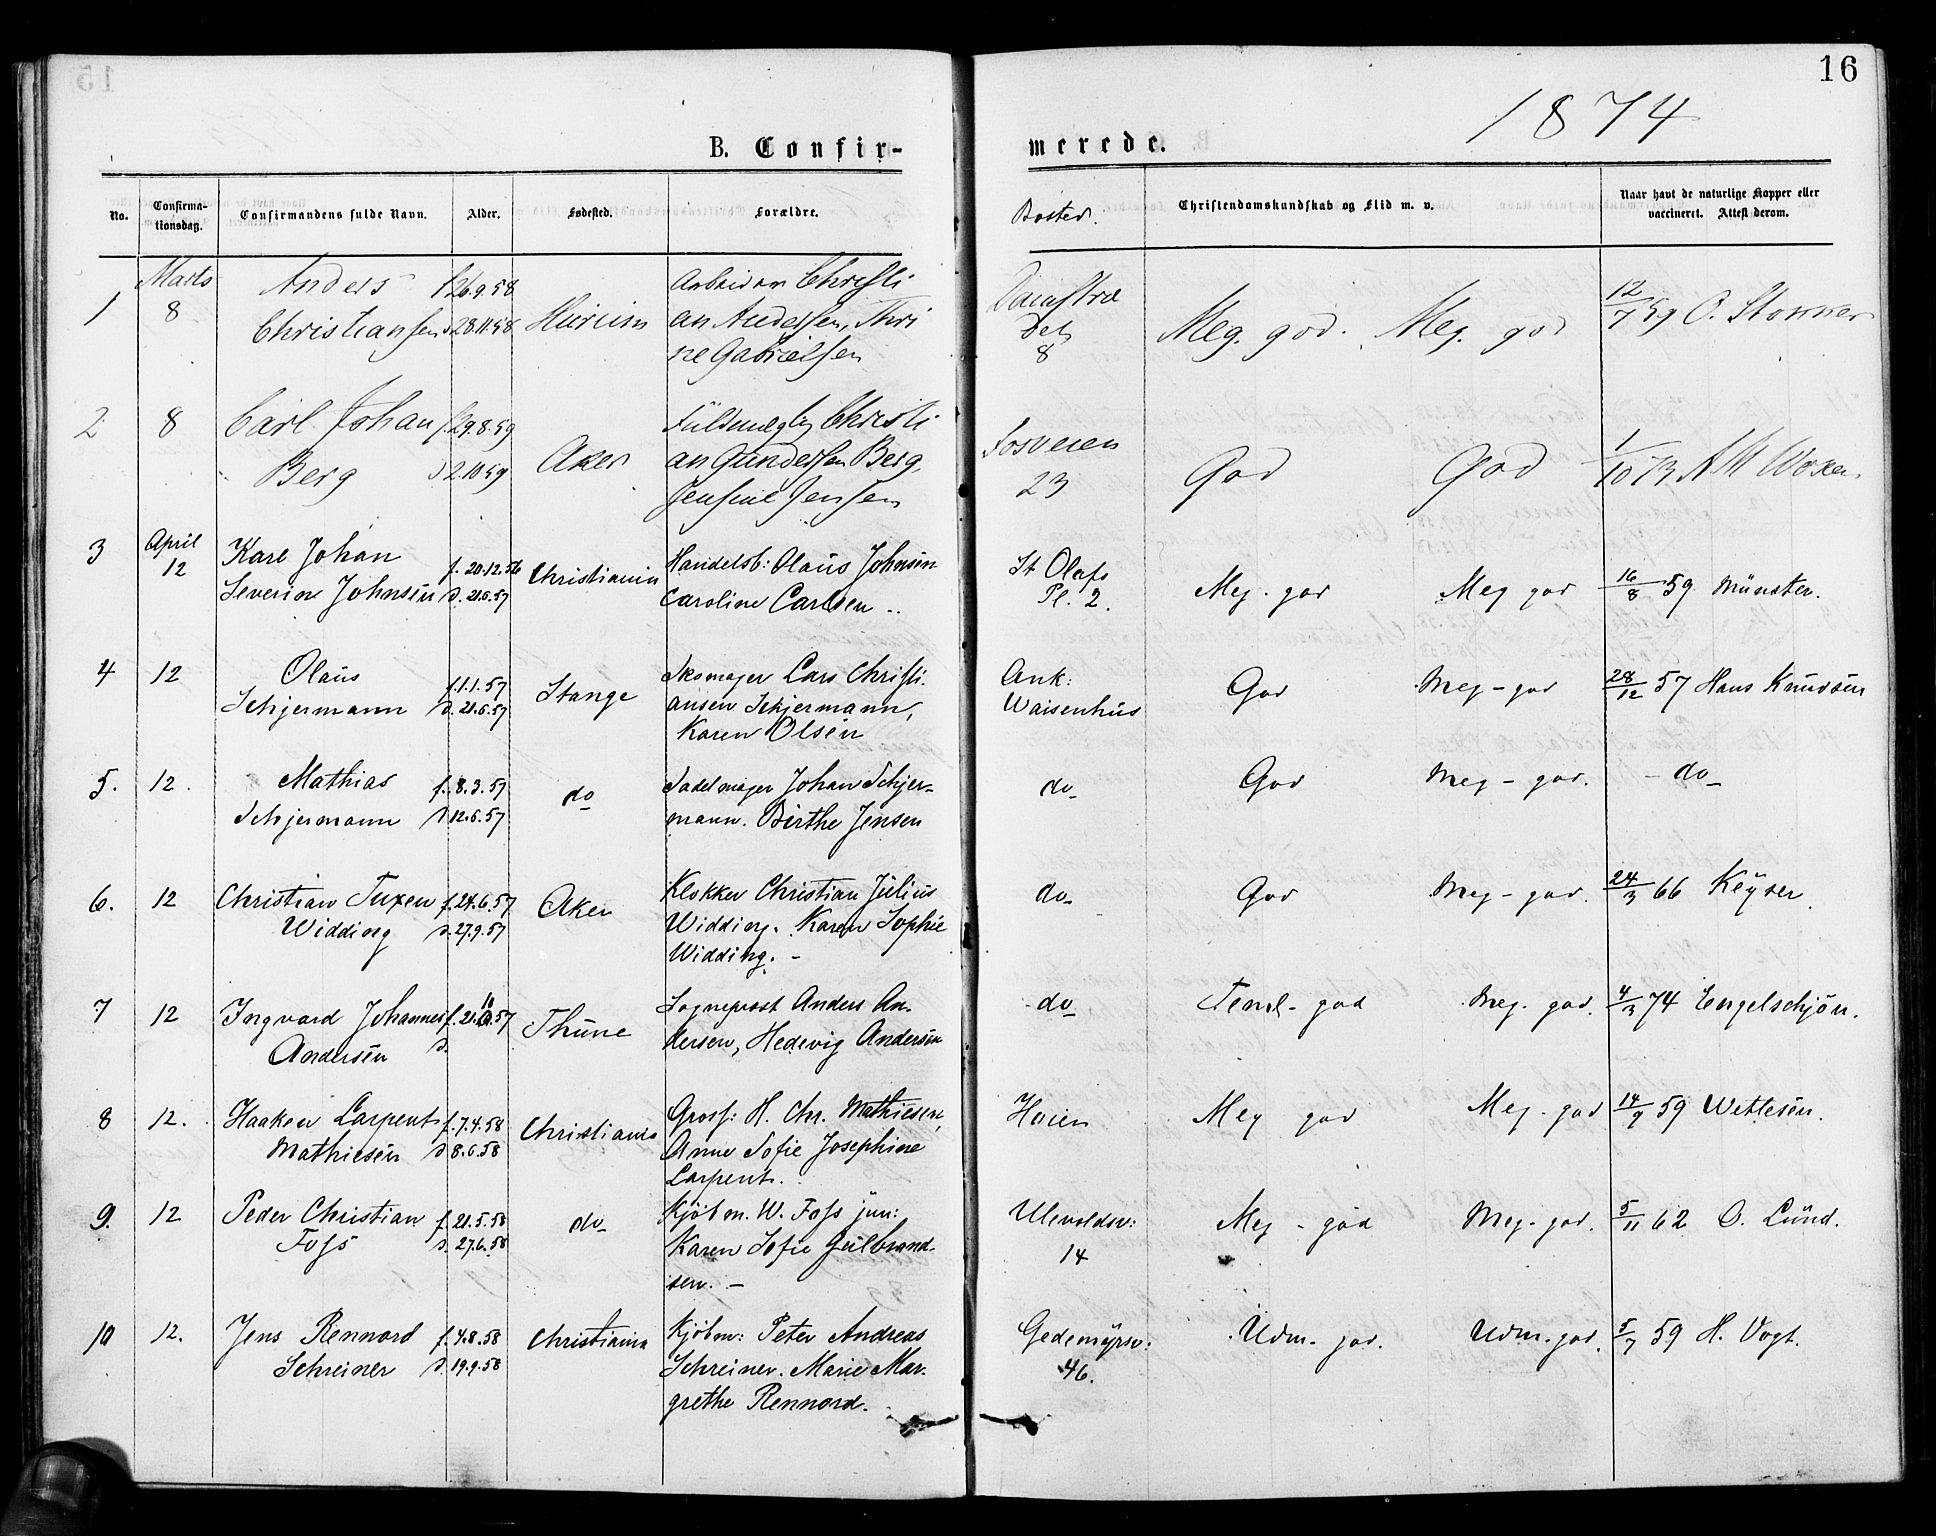 16
1874
B. Confir-
merede.
No.
Confirma-
tionsdag.
Confirmandens fulde Navn.
Alder.
Fødested.
Forældre.
Bosted.
Christendomskundskab og Flid m. v.
Naar havt de naturlige Kopper eller
vaccineret. Attest derom.
1 Marts 8 Anders f. 26.9.58 Arbeidsm Christi
Christiansen d. 28.11.58 Hurum an Andersen, Thri
ne Gabrielsen
Damstræ
det 8 Meg. god. Meg. god 12/7 59 O. Stormer
2 8 Carl Johan f. 29.8.59 Fuldmægtig Christi
Berg d 2.10.59 Aker an Gundersen Berg,
Jensine Jensen
Fosveien
23 God God 1/10 73
3 April 12 Karl Johan f. 20.12.56 Christiania Handelsb: Olaus Johnsen
Severin Johnsen d. 21.6.57 Caroline Carlsen ..
St Olafs
Pl. 2. Meg. god Meg god 16/8 59 Münster.
4 12 Olaus f. 1.1.57 Stange Skomager Lars Christi.
Schjermann d. 21.6.57 ansen Schjermann,
Karen Olsen
Ank:
Waisenhus God Meg - god 28/12 57 Hans Knudsen
5. 12. Mathias f. 8.3.57 do Sadelmager Johan Schjer-
Schjermann d 12.6.57 mann. Birthe Jensen
do God Meg - god. - do -
6. 12 Christian Tuxen f. 24.6.57 Aker Klokker Christian Julius
Widding d. 27.9.57 Widding. Karen Sophie
Widding. -
do God Meg - god. 24/3 66 Keyser.
7 12 Ingvard Johannes f. 21.10.57 Thune Sogneprost Anders An-
Andersen d. dersen, Hedevig Andersen
do Temel - god Meg. god. 4/3 74 Engelschjøn.
8 12. Haaken Larpent f. 7.4.58 Christiania Gross: H. Chr. Mathiesen,
Mathiesen d 8.6.58 Anne Sofie Josephine
Larpent.
Høien Meg god Meg. god 14/9 59 Wettesen.
9. 12 Peder Christian f. 21.5.58 do Kjøbm. W. Foss jun:
Foss d. 27.6.58 Karen Sofie Gulbrand-
sen. -
Ulevoldsv:
14 Meg - god Meg. god. 5/11 62 O. Lund.
10 12. Jens Rennord f. 4.8.58 Christiania Kjøbm: Peter Andreas
Schreiner d. 19.9.58 Schreiner. Marie Mar-
grethe Rennord.
Gedemyrsv:
46. Udm. god. Udm. god. 5/7 59 H. Vogt.